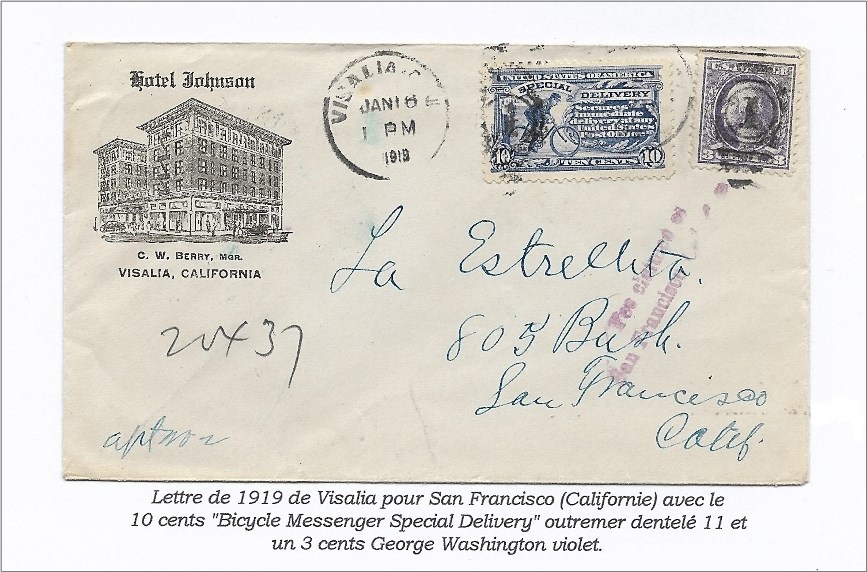 Hotel Johnson
C. W. BERRY, MGR.
VISALIA, CALIFORNIA
VISALIA, C
JAN 16
1 PM
1919
UNITED STATES OF AMERICA
SPECIAL DELIVERY
Secures
immediate
delivery at any
United States
Post Office
10 TEN CENTS 10
La Estrellita.
805 Bush.
San Francisco
Calif.
Fee claimed at
San Francisco
20437
Lettre de 1919 de Visalia pour San Francisco (Californie) avec le
10 cents "Bicycle Messenger Special Delivery" outremer dentelé 11 et
un 3 cents George Washington violet.